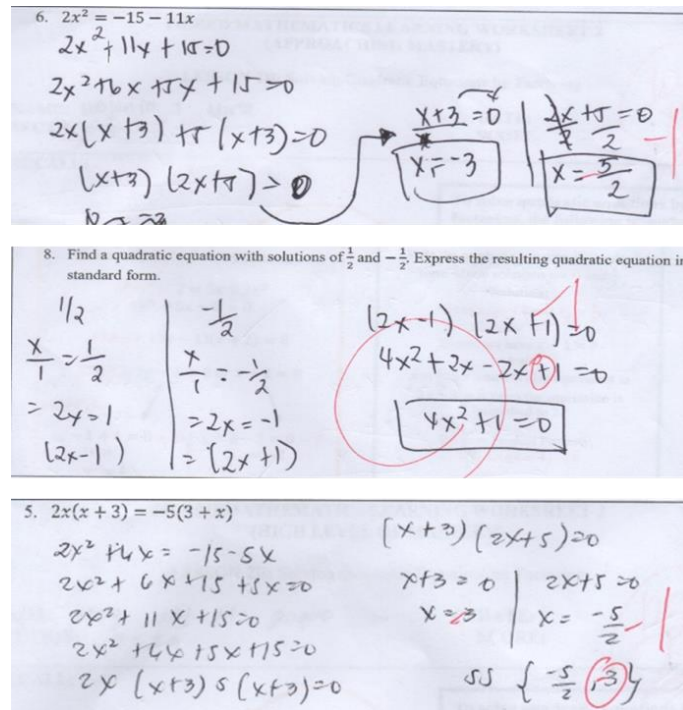 6. 2x² = −15 − 11x
2x² + 11x + 15 = 0
2x² + 6x + 5x + 15 = 0
2x(x + 3) + 5(x + 3) = 0
(x+3) (2x+5) = 0
x+3 = 0
x = -3
2x + 5 = 0
2 2
x = -5/2
-1
8. Find a quadratic equation with solutions of 1/2 and −1/2. Express the resulting quadratic equation in
standard form.
1/2
x/1 = 1/2
= 2x = 1
(2x - 1)
-1/2
x/1 = -1/2
= 2x = -1
= (2x + 1)
(2x - 1) (2x + 1) = 0
4x² + 2x - 2x + 1 = 0
4x² + 1 = 0
5. 2x(x + 3) = −5(3 + x)
2x² + 6x = -15 - 5x
2x² + 6x + 15 + 5x = 0
2x² + 11x + 15 = 0
2x² + 6x + 5x + 15 = 0
2x (x+3) 5 (x+3) = 0
(x+3) (2x+5) = 0
x+3 = 0
x = 3
2x+5 = 0
x = -5/2
-1
SS { -5/2, 3}